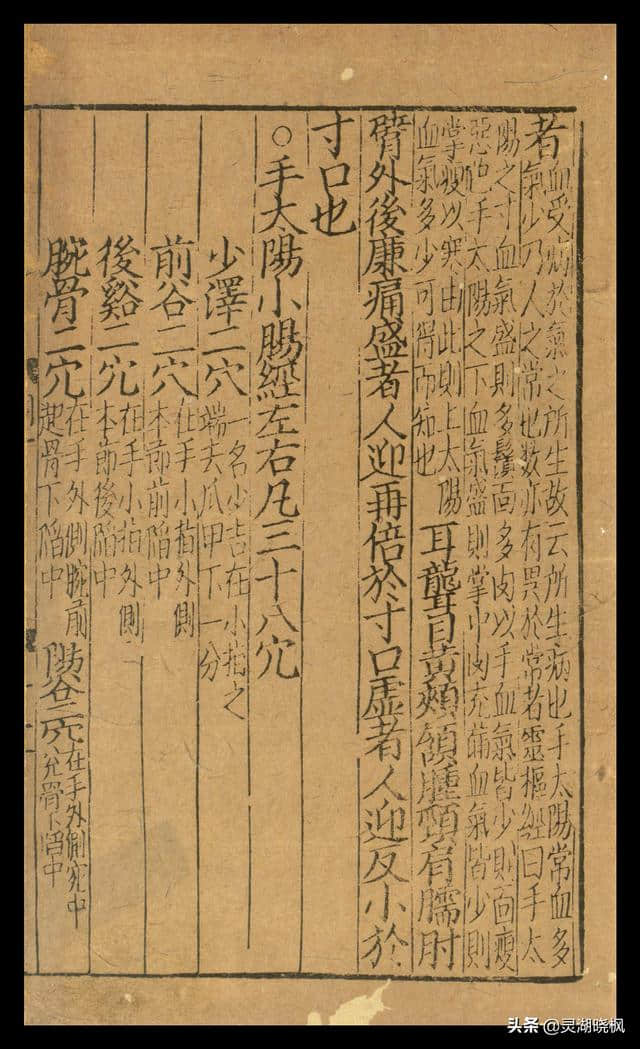 者血受病於氣之所生故云所生病也手太陽常血多
氣少乃人之常也數亦有異於常者靈樞經曰手太
陽之寸血氣盛則多鬚面多肉以手血氣皆少則面瘦
惡色手太陽之下血氣盛則掌中肉充滿血氣皆少則
掌瘦以寒由此則上太陽
血氣多少可得而知也
耳聾目黃頰頷腫頸肩臑肘
臂外後廉痛盛者人迎再倍於寸口虛者人迎反小於
寸口也
○手太陽小腸經左右凡三十八穴
少澤二穴
一名少吉在小指之
端去爪甲下一分
前谷二穴
在手小指外側
本節前陷中
後谿二穴
在手小指外側
本節後陷中
腕骨二穴
在手外側腕前
起骨下陷中
陽谷二穴
在手外側腕中
兌骨下陷中
头条 @灵湖晓枫